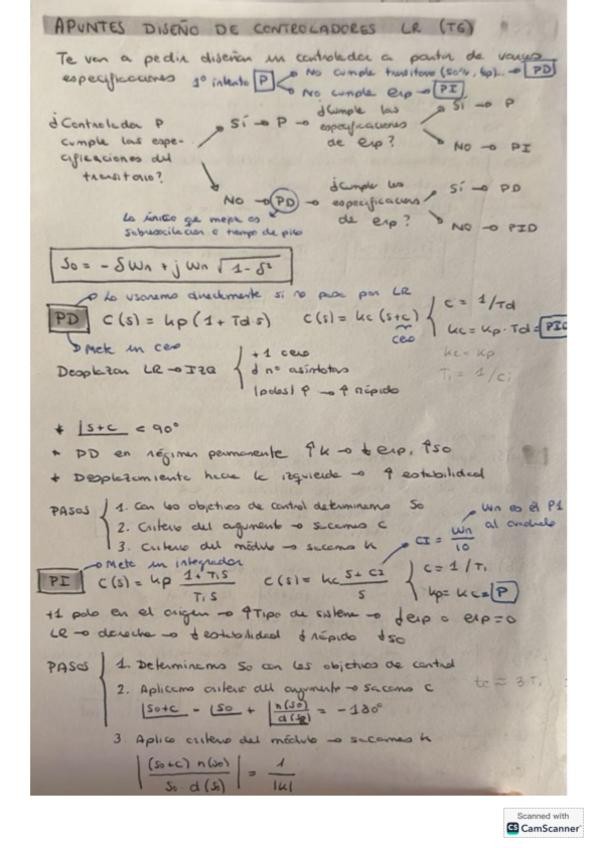 APUNTES DISEÑO DE CONTROLADORES LR (T6)
Te van a pedir diseñar un controlador a partir de varias
especificaciones 1º intento P No cumple transitorio (SO%, tp)... → PD
No cumple erp → PI
¿Controlador P
cumple las espe-
cificaciones del
transitorio?
SÍ → P → ¿Cumple las
especificaciones
de erp?
SÍ → P
NO → PI
NO → PD → ¿Cumple las
especificaciones
de erp?
SÍ → PD
NO → PID
Lo único que mejora es
subreoscilación o tiempo de pico
So = - δWn + j Wn √1-δ²
Lo usaremos directamente si no pasa por LR
PD C(s) = kp (1 + Td s) C(s) = kc (s+c) { c = 1/Td
cero
kc = kp · Td =
Mete un cero
kc = kp
Ti = 1/ci
Desplazar LR → IZQ { +1 cero
↓ nº asíntotas
|polos| ↑ → ↑ rápido
* |s+c < 90°
* PD en régimen permanente ↑k → ↓ erp, ↑SO
* Desplazamiento hacia la izquierda → ↑ estabilidad
PASOS { 1. Con los objetivos de control determinamos So
2. Criterio del argumento → sacamos c
3. Criterio del módulo → sacamos k
Wn es el P1
al cuadrado
CI = Wn/10
Mete un integrador
PI C(s) = kp 1+TiS / TiS C(s) = kc S+CI / S { c = 1/Ti
kp = kc = P
+1 polo en el origen → ↑Tipo de sistema → ↓erp o erp=0
LR → derecha → ↓ estabilidad ↓ rápido ↓SO
PASOS { 1. Determinamos So con los objetivos de control
2. Aplicamos criterio del argumento → sacamos c
|So+c - |So + |n(So)/d(So) = -180°
3. Aplico criterio del módulo → sacamos k
|(So+c) n(So) / So d(So)| = 1/|k|
Scanned with
CS CamScanner